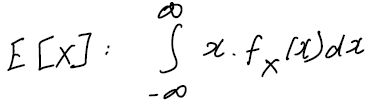 E[X] : ∫_{-∞}^{∞} x . f_X(x) dx